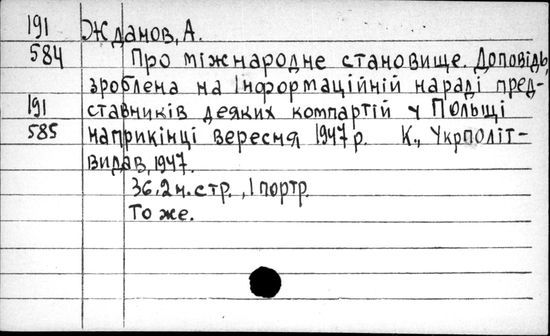 191 Жданов, А.
584 Про міжнародне становище. Доповідь,
зроблена на Інформаційній нараді пред-
191 ставників деяких компартій у Польщі
585 наприкінці вересня 1947 р. К., Укрполіт-
видав, 1947.
36, 2 н. стр., 1 портр.
То же.